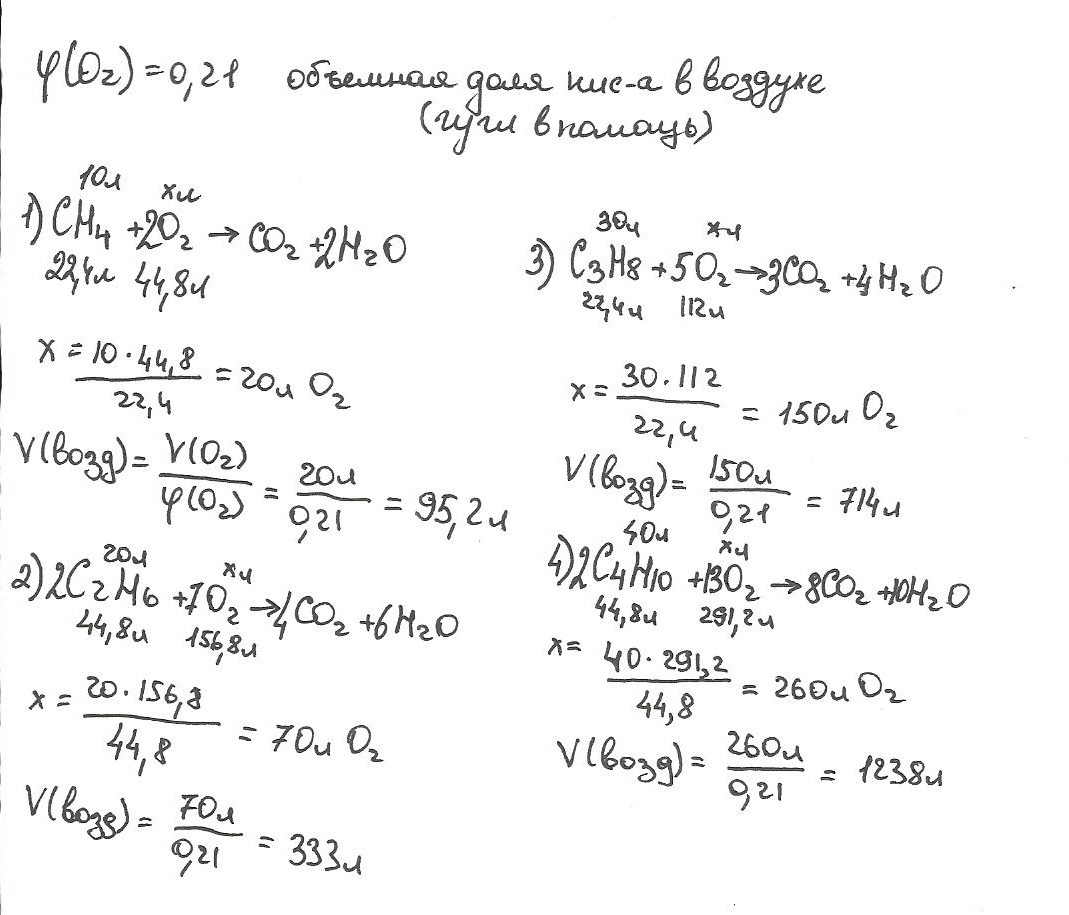 φ(O₂) = 0,21 объемная доля кис-а в воздухе
(гугл в помощь)
10л xл
1) CH₄ + 2O₂ → CO₂ + 2H₂O
22,4л 44,8л
x = 10 · 44,8 / 22,4 = 20л O₂
V(возд) = V(O₂) / φ(O₂) = 20л / 0,21 = 95,2л
20л xл
2) 2C₂H₆ + 7O₂ → 4CO₂ + 6H₂O
44,8л 156,8л
x = 20 · 156,8 / 44,8 = 70л O₂
V(возд) = 70л / 0,21 = 333л
30л xл
3) C₃H₈ + 5O₂ → 3CO₂ + 4H₂O
22,4л 112л
x = 30 · 112 / 22,4 = 150л O₂
V(возд) = 150л / 0,21 = 714л
40л xл
4) 2C₄H₁₀ + 13O₂ → 8CO₂ + 10H₂O
44,8л 291,2л
x = 40 · 291,2 / 44,8 = 260л O₂
V(возд) = 260л / 0,21 = 1238л